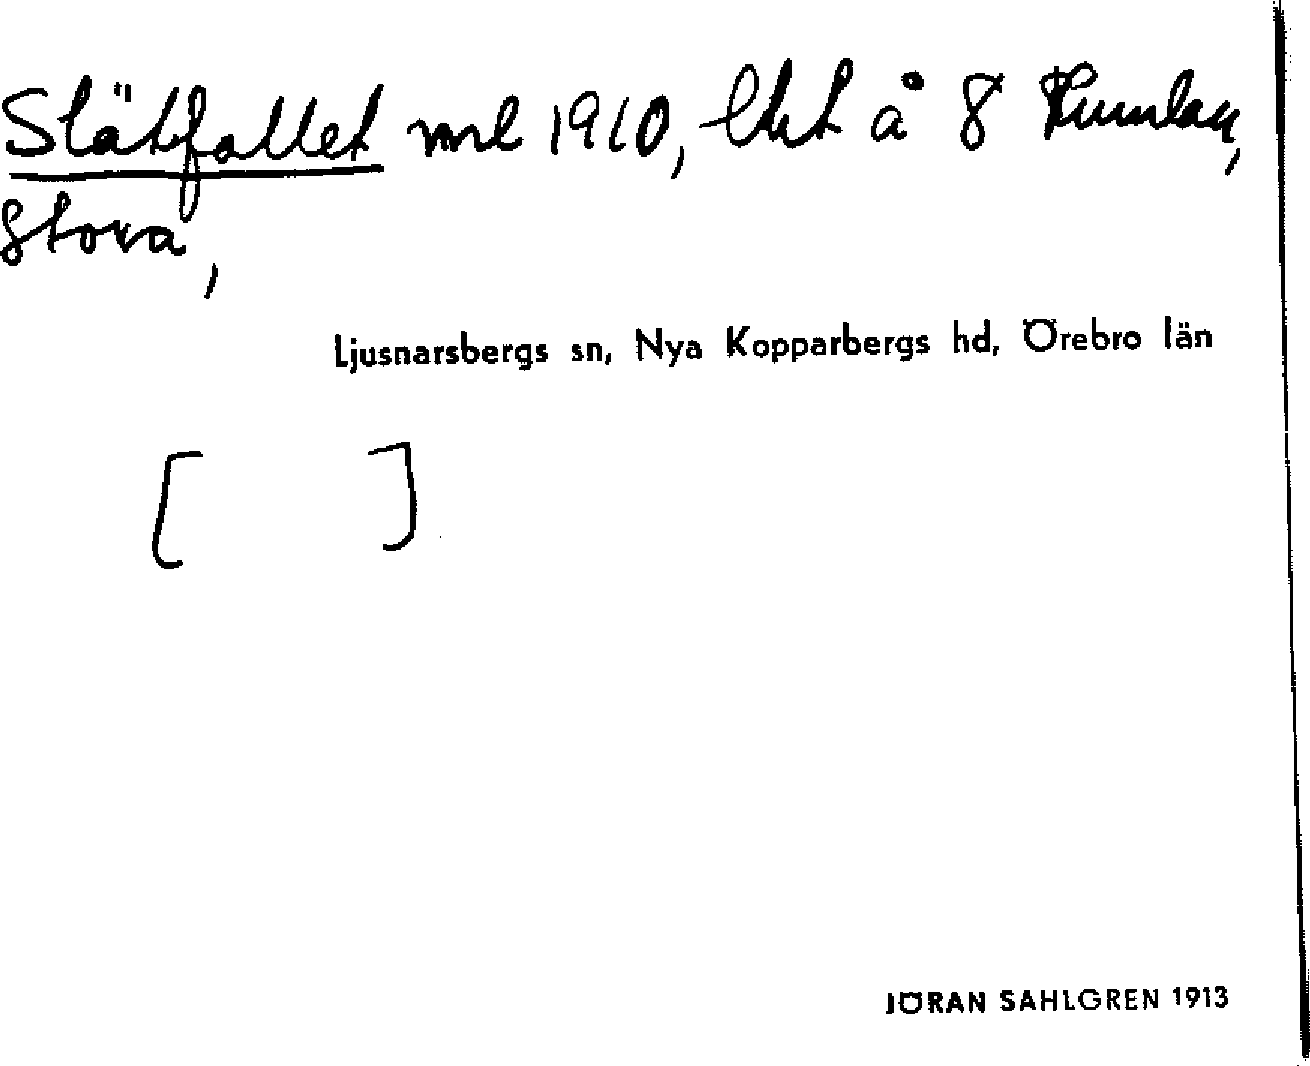 Slätfallet mл 1910, lht å 8 Kumlan,
Stora,
Ljusnarsbergs sn, Nya Kopparbergs hd, Örebro län
[ ]
JÖRAN SAHLGREN 1913